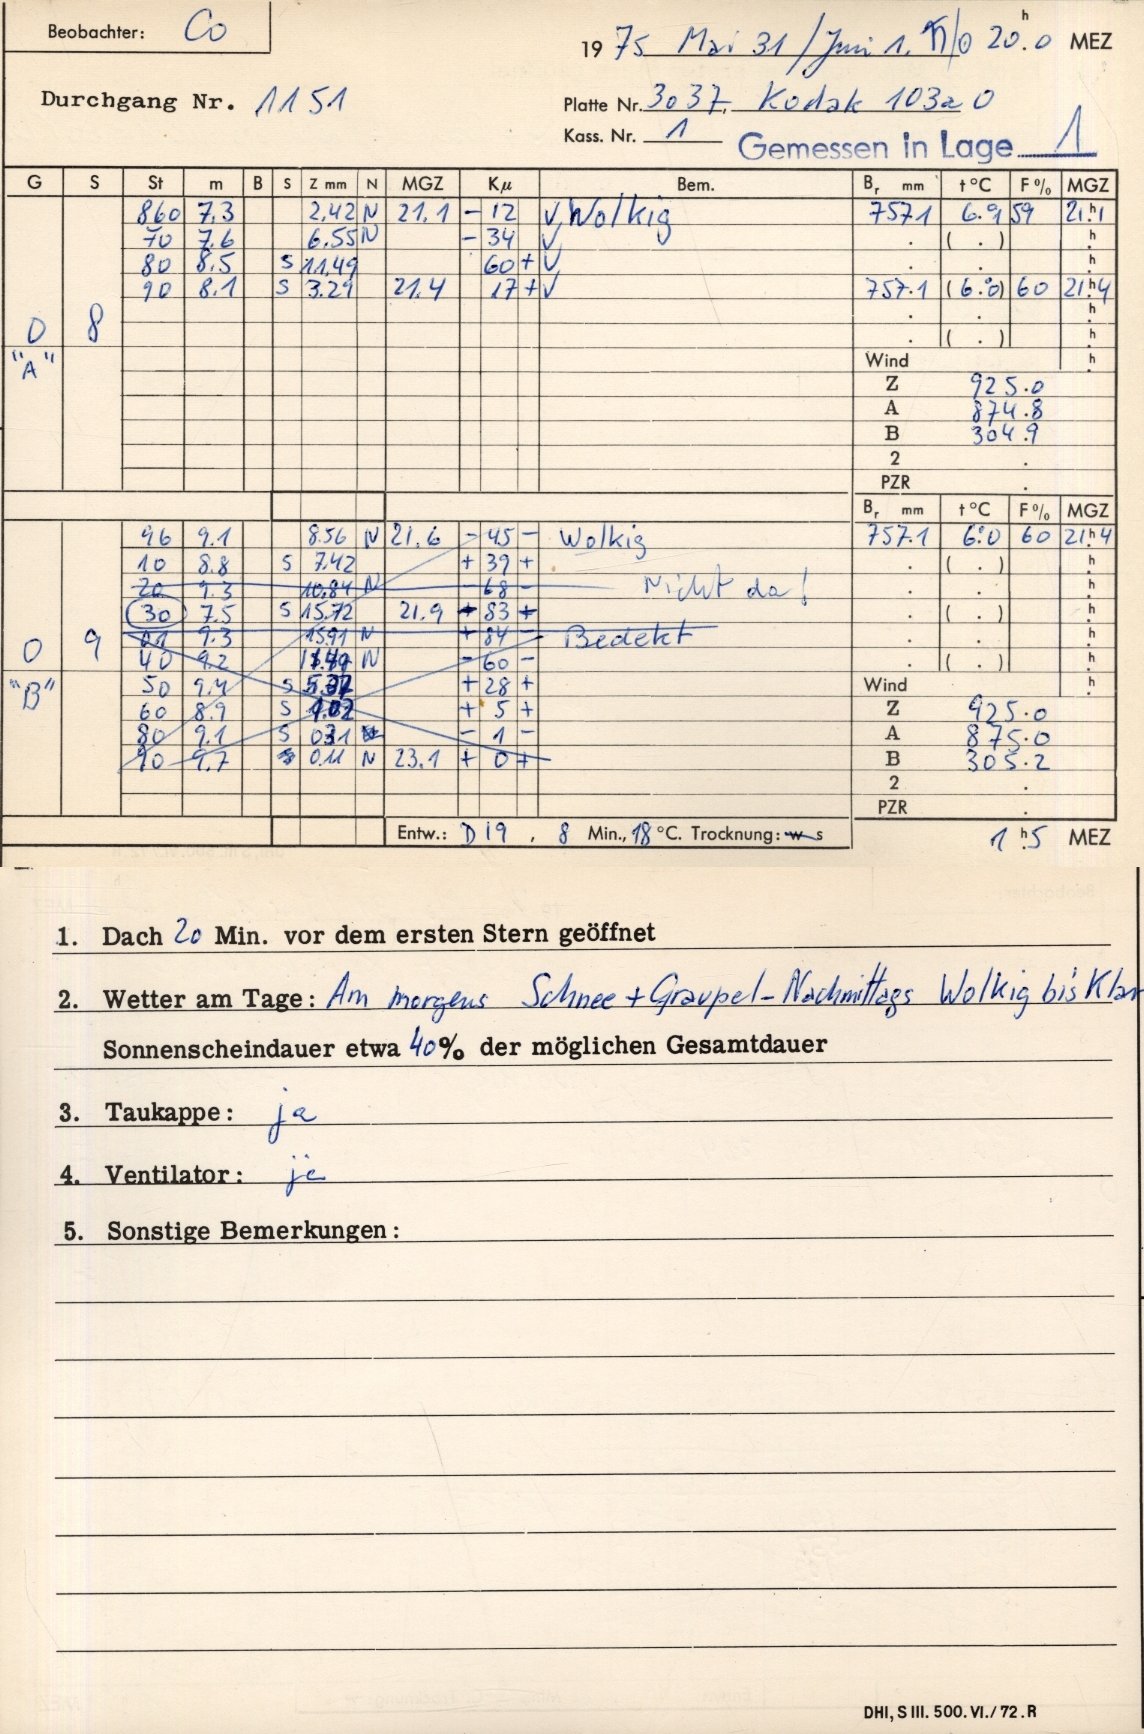 Beobachter: Co
1975 Mai 31/Juni 1. ♄/☉ 20ʰ.0 MEZ
Durchgang Nr. 1151
Platte Nr. 3037, Kodak 103a O
Kass. Nr. 1
Gemessen in Lage 1
G S St m B S Z mm N MGZ Kμ Bem. Bᵣ mm t°C F% MGZ
860 7.3 2.42 N 21.1 - 12 √ Wolkig 757.1 6.9 59 21ʰ.1
70 7.6 6.55 N - 34 √ . ( . ) ʰ.
80 8.5 S 11.49 60 + √ . . ʰ.
90 8.1 S 3.29 21.4 17 + √ 757.1 (6.0) 60 21ʰ.4
. . ʰ.
0 8 . ( . ) ʰ.
"A" Wind ʰ.
Z 925.0
A 874.8
B 304.9
2 .
PZR .
Bᵣ mm t°C F% MGZ
96 9.1 8.56 N 21.6 - 45 - Wolkig 757.1 6.0 60 21ʰ.4
10 8.8 S 7.42 + 39 + . ( . ) ʰ.
20 9.3 10.84 N - 68 - Nicht da! . . ʰ.
30 7.5 S 15.72 21.9 + 83 + . ( . ) ʰ.
01 9.3 15.91 N + 84 - Bedekt . . ʰ.
0 9 40 9.2 N - 60 - . ( . ) ʰ.
"B" 50 9.4 S + 28 + Wind ʰ.
60 8.9 S + 5 + Z 925.0
80 9.1 S 0.31 - 1 - A 875.0
90 9.7 0.11 N 23.1 + 0 + B 305.2
2 .
PZR .
Entw.: D19, 8 Min., 18 °C. Trocknung: w s 1ʰ.5 MEZ
1. Dach 20 Min. vor dem ersten Stern geöffnet
2. Wetter am Tage: Am morgens Schnee + Graupel - Nachmittags Wolkig bis Klar
Sonnenscheindauer etwa 40% der möglichen Gesamtdauer
3. Taukappe: ja
4. Ventilator: ja
5. Sonstige Bemerkungen:
DHI, S III. 500. VI./72. R